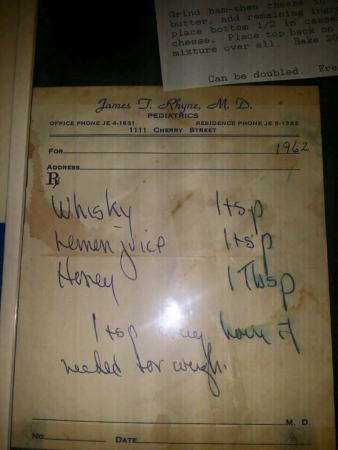 Grind ham-then cheese
butter, add remaining ingr
place bottom 1/2 in casse
cheese. Place top back on
mixture over all. Bake 20
Can be doubled. Fre
James T. Rhyne, M. D.
PEDIATRICS
OFFICE PHONE JE 4-1631 RESIDENCE PHONE JE 6-1322
1111 CHERRY STREET
FOR 1962
ADDRESS
Rx
Whisky 1 tsp
Lemon juice 1 tsp
Honey 1 Tbsp
1 tsp every hour if
needed for cough.
M. D.
NO. DATE